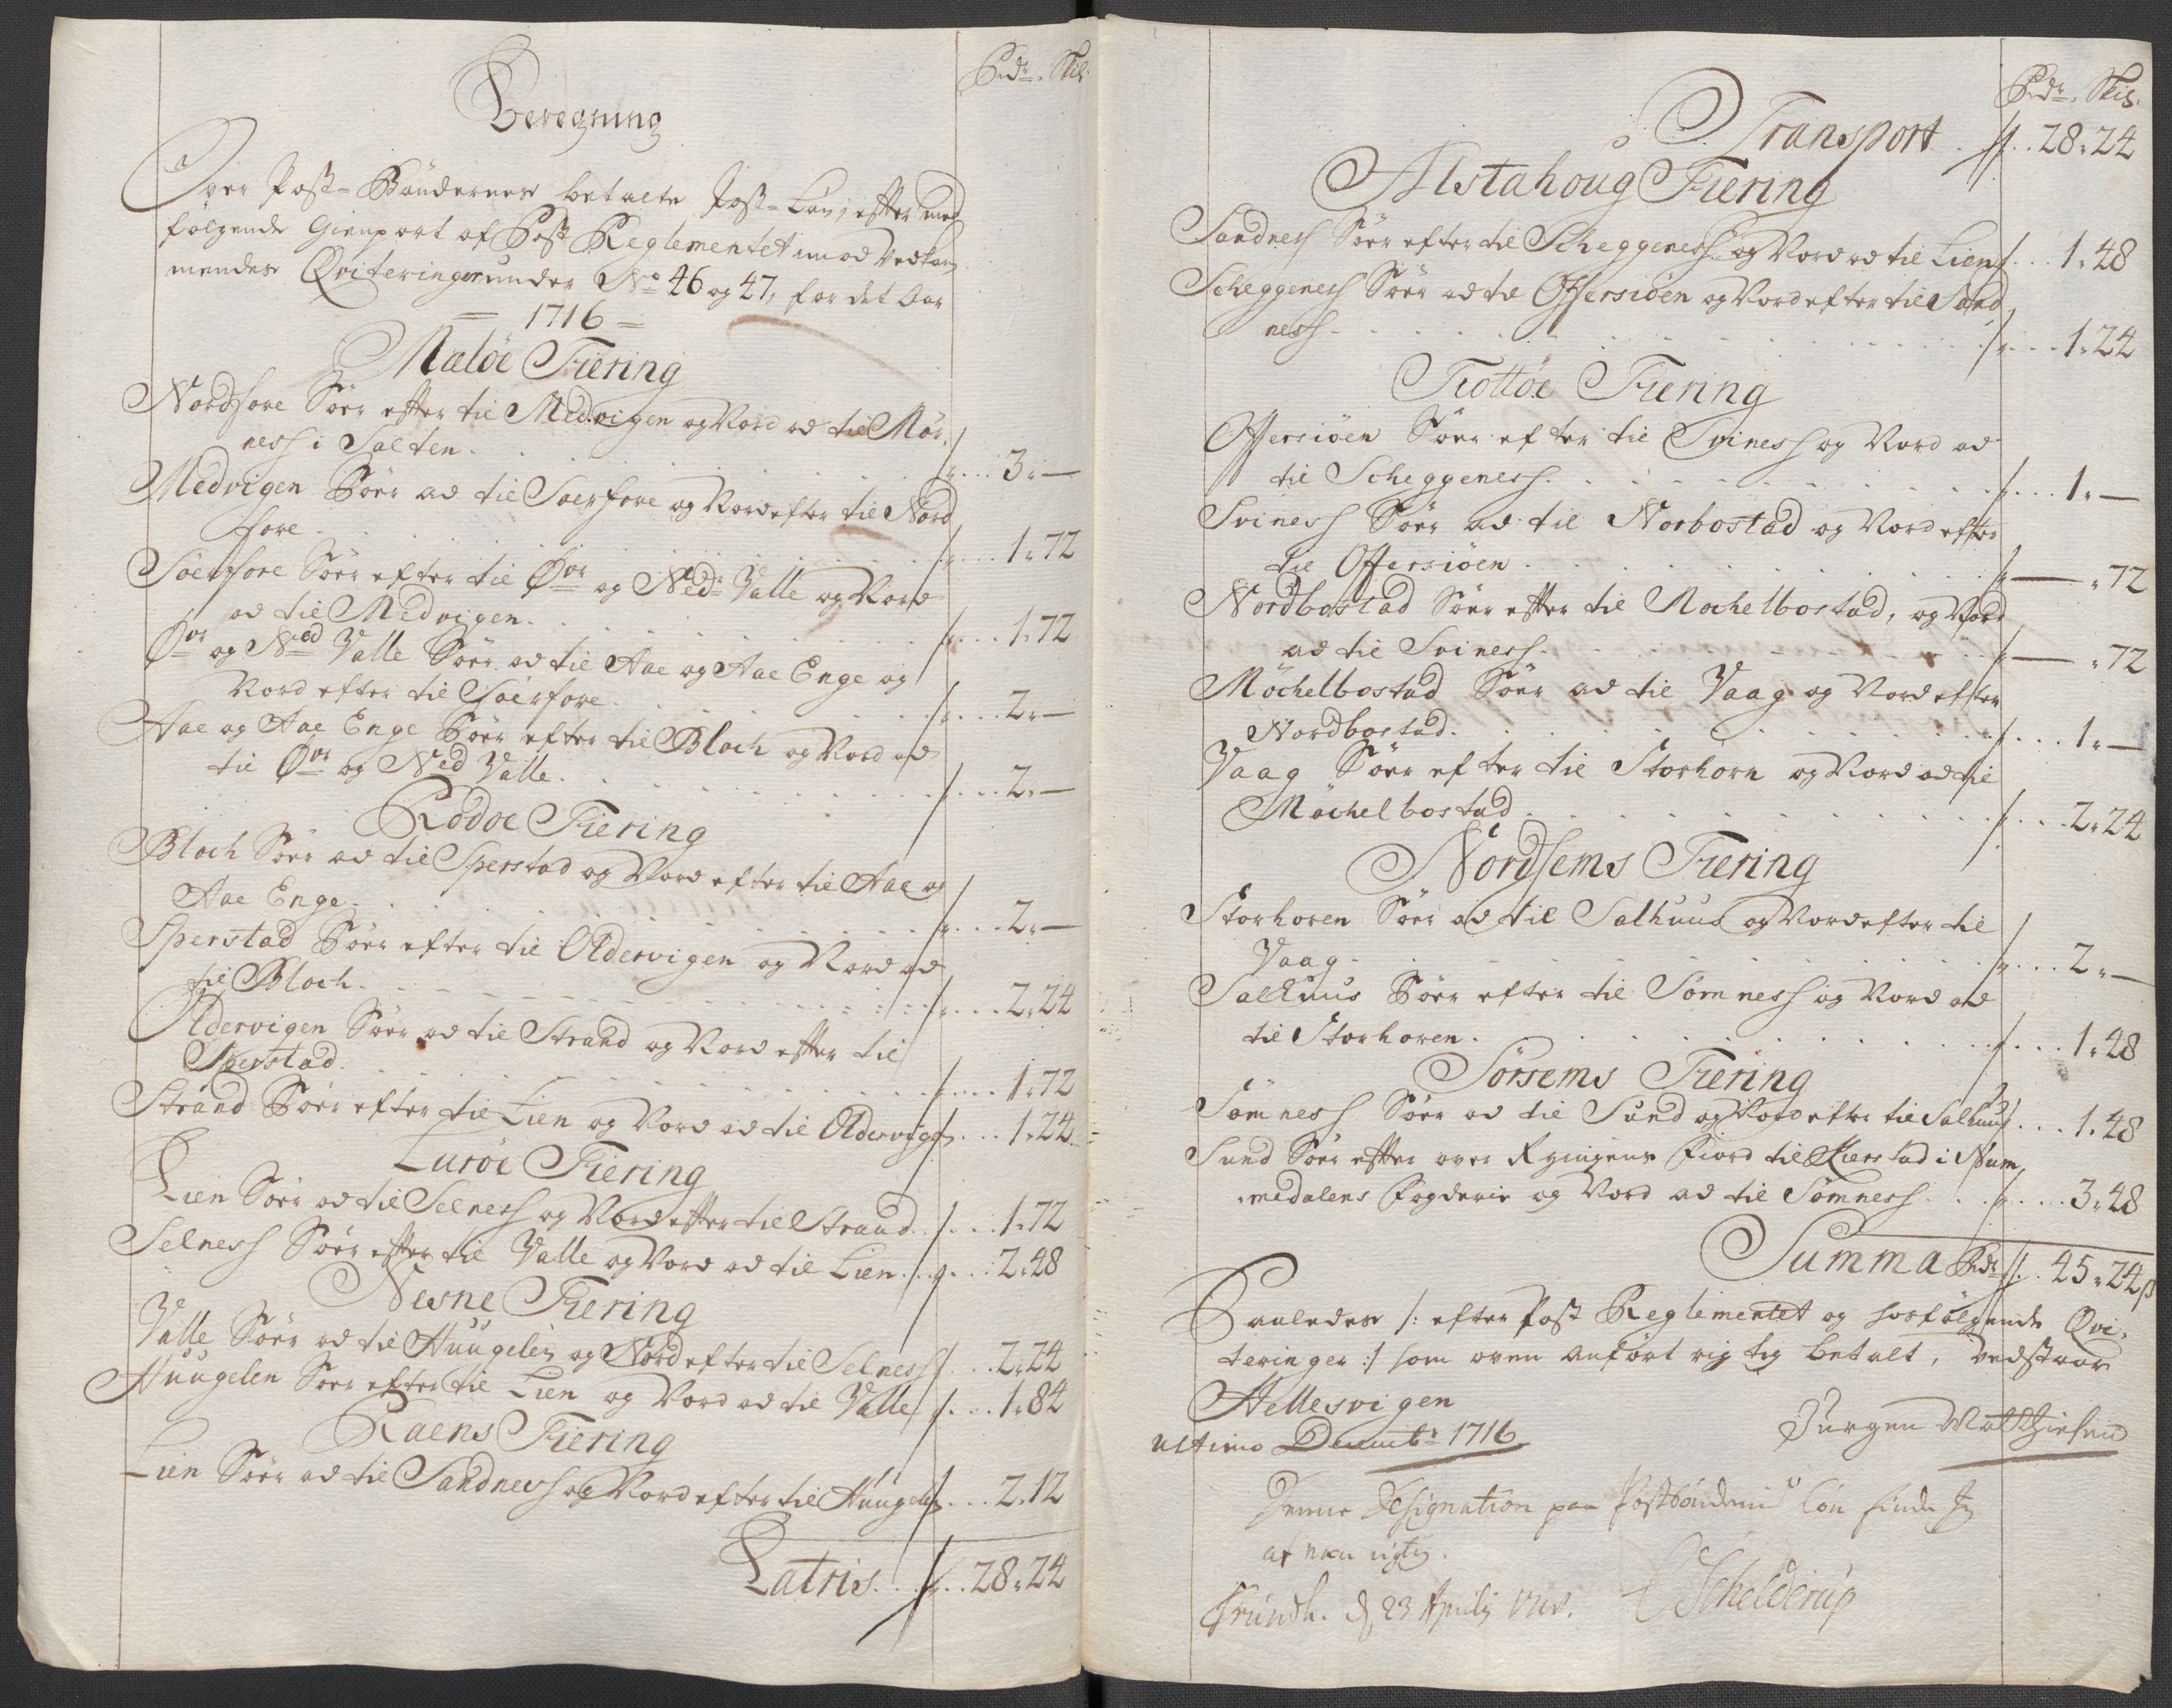 Rdr. Skil.
Beregning
Over Post-Bøndernes betalte Post-Løn, efter med
følgende Gienport af Post Reglementet imod Vedkom
mendes Qviteringer under No 46 og 47, for det Aar
= 1716 =
Meløe Fiering
Nordfore Söer efter til Medvigen og Nord ad til Mör,
ness i Salten . . . 3 " —
Medvigen Söer ad til Soerfore og Nord efter til Nord
fore . . . 1 " 72
Söerfore Söer efter til Øvr og Nedr Valle og Nord
ad til Medvigen . . . 1 " 72
Øvr og Ned Valle Söer ad til Aae og Aae Enge og
Nord efter til Söerfore . . . 2 " —
Aae og Aae Enge Söer efter til Bloch og Nord ad
til Øvr og Ned Valle . . . 2 " —
Rödöe Fiering
Bloch Söer ad til Sperstad og Nord efter til Aae og
Aae Enge . . . 2 " —
Sperstad Söer efter til Oldervigen og Nord ad
til Bloch . . . 2 " 24
Oldervigen Söer ad til Strand og Nord efter til
Sperstad . . . 1 " 72
Strand Söer efter til Lien og Nord ad til Oldervigen . . . 1 " 24
Luröe Fiering
Lien Söer ad til Selness og Nord efter til Strand . . . 1 " 72
Selness Söer efter til Valle og Nord ad til Lien . . . 2 " 48
Nesne Fiering
Valle Söer ad til Huugelen og Nord efter til Selness . . . 2 " 24
Huugelen Söer efter til Lien og Nord ad til Valle . . . 1 " 84
Raens Fiering
Lien Söer ad til Sandness og Nord efter til Huugelen . . . 2 " 12
Latris . . . 28 " 24
Rdr. Skis.
Transport . . . 28 " 24
Alstahoug Fiering
Sandness Söer efter til Scheggeness og Nord ad til Lien . . . 1 " 48
Scheggeness Söer ad til Offersiöen og Nord efter til Sand,
ness . . . 1 " 24
Tiottöe Fiering
Offersiöen Söer efter til Sviness og Nord ad
til Scheggeness . . . 1 " —
Sviness Söer ad til Norbostad og Nord efter
til Offersiöen . . . — " 72
Nordbostad Söer efter til Mochelbostad, og Nord
ad til Sviness . . . — " 72
Möchelbostad Söer ad til Vaag og Nord efter
Nordbostad . . . 1 " —
Vaag Söer efter til Storhorn og Nord ad til
Möchelbostad . . . 2 " 24
Nordsems Fiering
Storhoren Söer ad til Salhuus og Nord efter til
Vaag . . . 2 " —
Salhuus Söer efter til Sömness og Nord ad
til Storhoren . . . 1 " 48
Sörsems Fiering
Sömness Söer ad til Sund og Nord efter til Salhuus . . . 1 " 48
Sund Söer efter over Fiord til i Num,
medalens Fogderie og Nord ad til Sömness . . . 3 " 48
Summa Rdr . . . 45 " 24 ß
Saaledes /: efter Post Reglementet og hosfölgende Qvi,
teringer :/ som oven anfört rigtig betalt, Vedstaar
Hellesvigen
ultimo Decembr 1716
Jürgen Matthiesen
Denne Designation paa Postböndernis Lön finder Jeg
at være rigtig.
Trundh. d 23 Aprilis
Schelderup